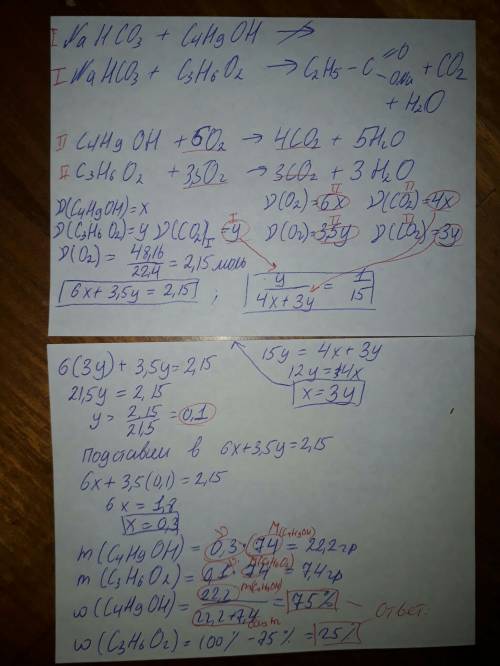 I NaHCO3 + C4H9OH ↛
I NaHCO3 + C3H6O2 → C2H5 - C =O ONa + CO2
+ H2O
II C4H9OH + 6O2 → 4CO2 + 5H2O
II C3H6O2 + 3,5O2 → 3CO2 + 3H2O
ν(C4H9OH) = x ν(O2) = 6x II ν(CO2) = 4x II
ν(C3H6O2) = y ν(CO2)I = y I ν(O2) = 3,5y II ν(CO2) = 3y II
ν(O2) = 48,16/22,4 = 2,15 моль
6x + 3,5y = 2,15 ; y/(4x+3y) = 1/15
6(3y) + 3,5y = 2,15 15y = 4x + 3y
21,5y = 2,15 12y = 4x
y = 2,15/21,5 = 0,1 x = 3y
Подставим в 6x+3,5y=2,15
6x + 3,5(0,1) = 2,15
6x = 1,8
x = 0,3
m(C4H9OH) = 0,3 · 74 = 22,2гр
m(C3H6O2) = 0,1 · 74 = 7,4гр
ω(C4H9OH) = 22,2/(22,2+7,4) = 75%
ω(C3H6O2) = 100% - 75% = 25% ответ.